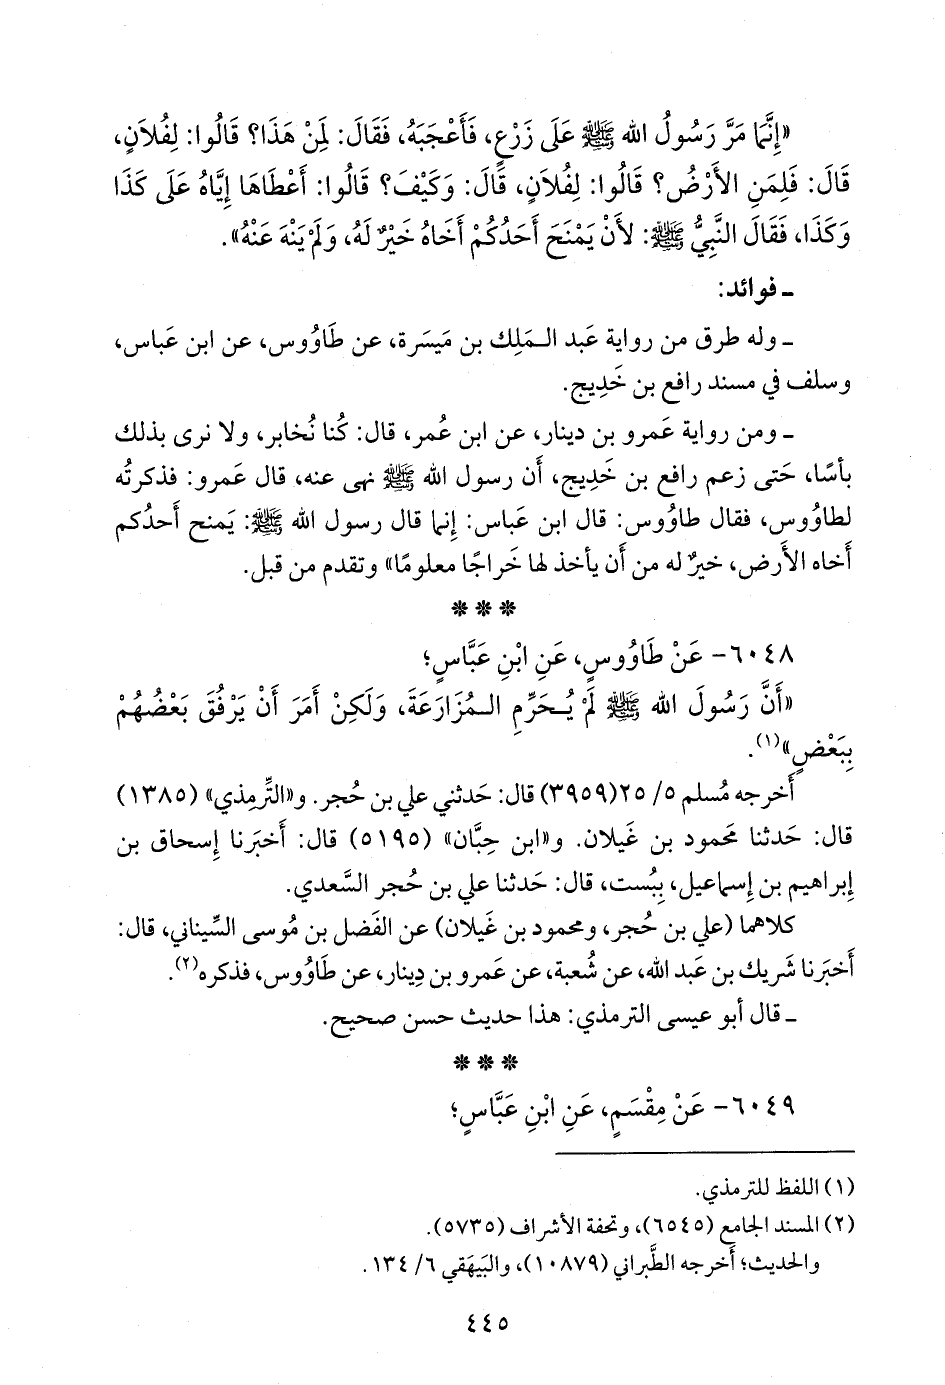 «إِنَّمَا مَرَّ رَسُولُ الله ﷺ عَلَى زَرْعٍ، فَأَعْجَبَهُ، فَقَالَ: لِمَنْ هَذَا؟ قَالُوا: لِفُلاَنٍ،
قَالَ: فَلِمَنِ الأَرْضُ؟ قَالُوا: لِفُلاَنٍ، قَالَ: وَكَيْفَ؟ قَالُوا: أَعْطَاهَا إِيَّاهُ عَلَى كَذَا
وَكَذَا، فَقَالَ النَّبِيُّ ﷺ: لأَنْ يَمْنَحَ أَحَدُكُمْ أَخَاهُ خَيْرٌ لَهُ، وَلَمْ يَنْهَ عَنْهُ».
ـ فوائد:
ـ وله طرق من رواية عَبد الـمَلِك بن مَيسَرة، عن طَاوُوس، عن ابن عَباس،
وسلف في مسند رافع بن خَدِيج.
ـ ومن رواية عَمرو بن دينار، عن ابن عُمر، قال: كُنا نُخابر، ولا نرى بذلك
بأسًا، حَتى زعم رافع بن خَدِيج، أَن رسول الله ﷺ نهى عنه، قال عَمرو: فذكرتُه
لطاوُوس، فقال طاوُوس: قال ابن عَباس: إِنما قال رسول الله ﷺ: يَمنح أَحدُكم
أَخاه الأَرض، خيرٌ له من أَن يأخذ لها خَراجًا معلومًا» وتقدم من قبل.
***
٦٠٤٨- عَنْ طَاوُوسٍ، عَنِ ابْنِ عَبَّاسٍ؛
«أَنَّ رَسُولَ الله ﷺ لَمْ يُـحَرِّمِ الـمُزَارَعَةَ، وَلَكِنْ أَمَرَ أَنْ يَرْفُقَ بَعْضُهُمْ
بِبَعْضٍ»(١).
أَخرجه مُسلم ٥/ ٢٥(٣٩٥٩) قال: حَدثني علي بن حُجر. و«التِّرمِذي» (١٣٨٥)
قال: حَدثنا مَحمود بن غَيلان. و«ابن حِبَّان» (٥١٩٥) قال: أَخبَرنا إِسحاق بن
إِبراهيم بن إِسماعيل، بِبُست، قال: حَدثنا علي بن حُجر السَّعدي.
كلاهما (علي بن حُجر، ومحمود بن غَيلان) عن الفَضل بن مُوسى السِّيناني، قال:
أَخبَرنا شَريك بن عَبد الله، عن شُعبة، عن عَمرو بن دِينار، عن طَاوُوس، فذكره(٢).
ـ قال أَبو عيسى الترمذي: هذا حديث حسن صحيح.
***
٦٠٤٩- عَنْ مِقْسَمٍ، عَنِ ابْنِ عَبَّاسٍ؛
(١) اللفظ للترمذي.
(٢) المسند الجامع (٦٥٤٥)، وتحفة الأشراف (٥٧٣٥).
والحديث؛ أَخرجه الطَّبراني (١٠٨٧٩)، والبَيهَقي ٦/ ١٣٤.
٤٤٥